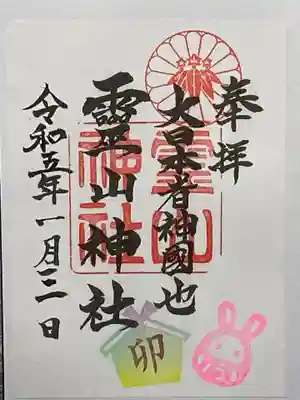 奉拝
大日本者神國也
霊山神社
令和五年一月三日
靈山
神社
卯